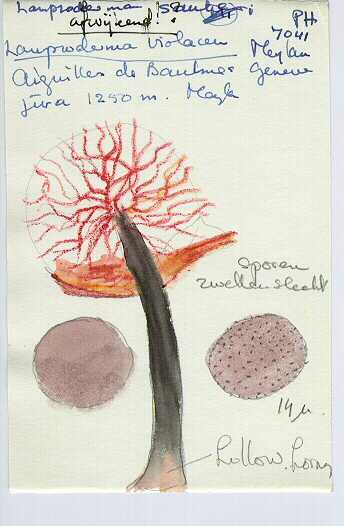 Lamproderma
afwijkend!
PH
7041
Lamproderma violaceu Meylan
Aiguilles de Baulmes Geneve
Jura 1250 m.
sporen
zwellen slecht
14 µ.